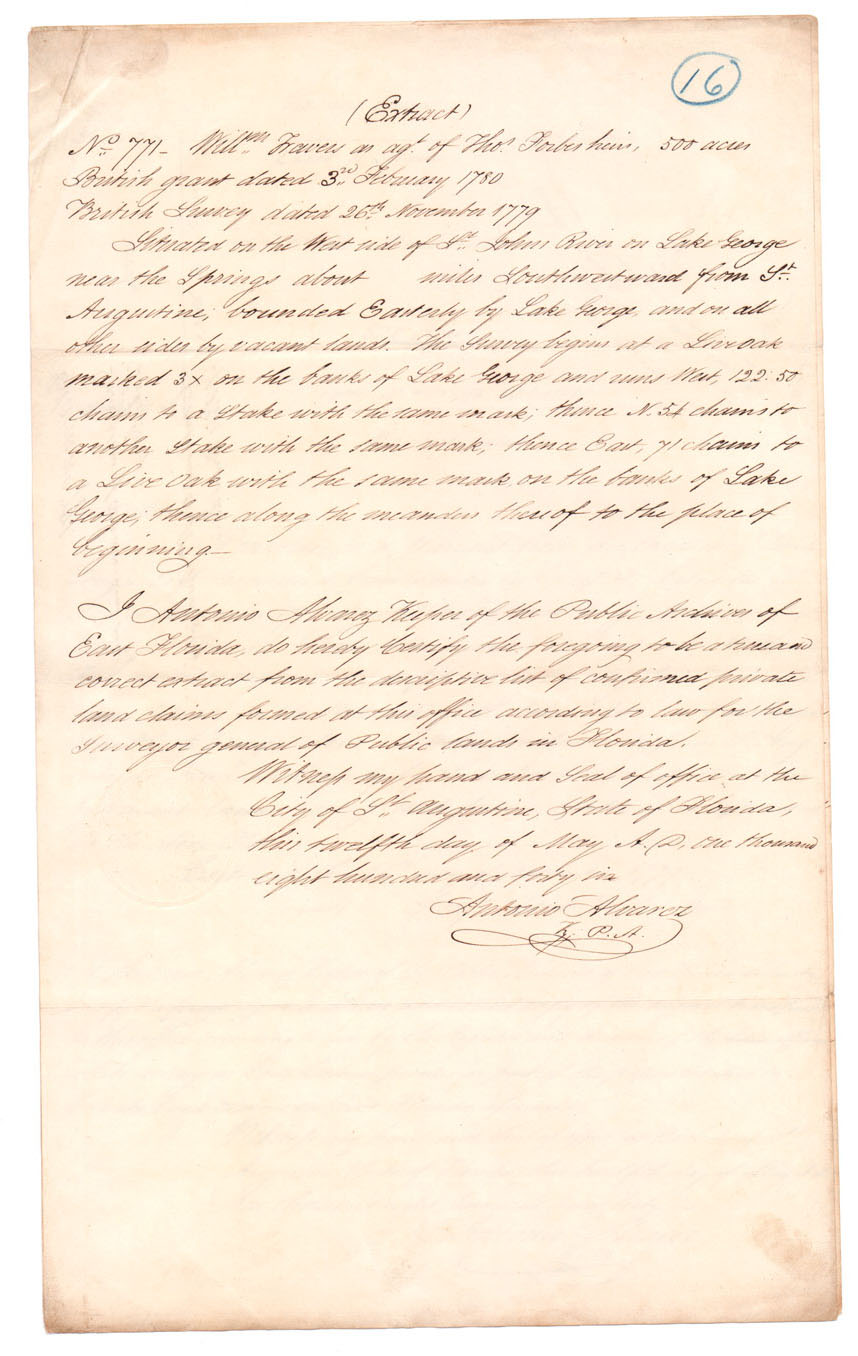 16
(Extract)
No. 771- Willm. Travers as agt. of Thos. Forbes heirs, 500 acres
British grant dated 3rd. February 1780
British Survey dated 26th. November 1779
Situated on the West side of St. Johns River on Lake George
near the Springs about miles Southwestward from St.
Augustine; bounded Easterly by Lake George, and on all
other sides by vacant lands. The Survey begins at a Live Oak
marked 3x on the banks of Lake George and runs West, 122.50
chains to a Stake with the same mark; thence N. 54 chains to
another Stake with the same mark; thence East, 71 chains to
a Live Oak with the same mark on the banks of Lake
George; thence along the meanders thereof to the place of
beginning—
I Antonio Alvarez Keeper of the Public Archives of
East Florida, do hereby Certify the foregoing to be a true and
correct extract from the descriptive list of confirmed private
land claims formed at this office according to law for the
Surveyor general of Public lands in Florida.
Witness my hand and Seal of office at the
City of St. Augustine, State of Florida,
this twelfth day of May A.D. one thousand
eight hundred and forty six
Antonio Alvarez
K. P. A.